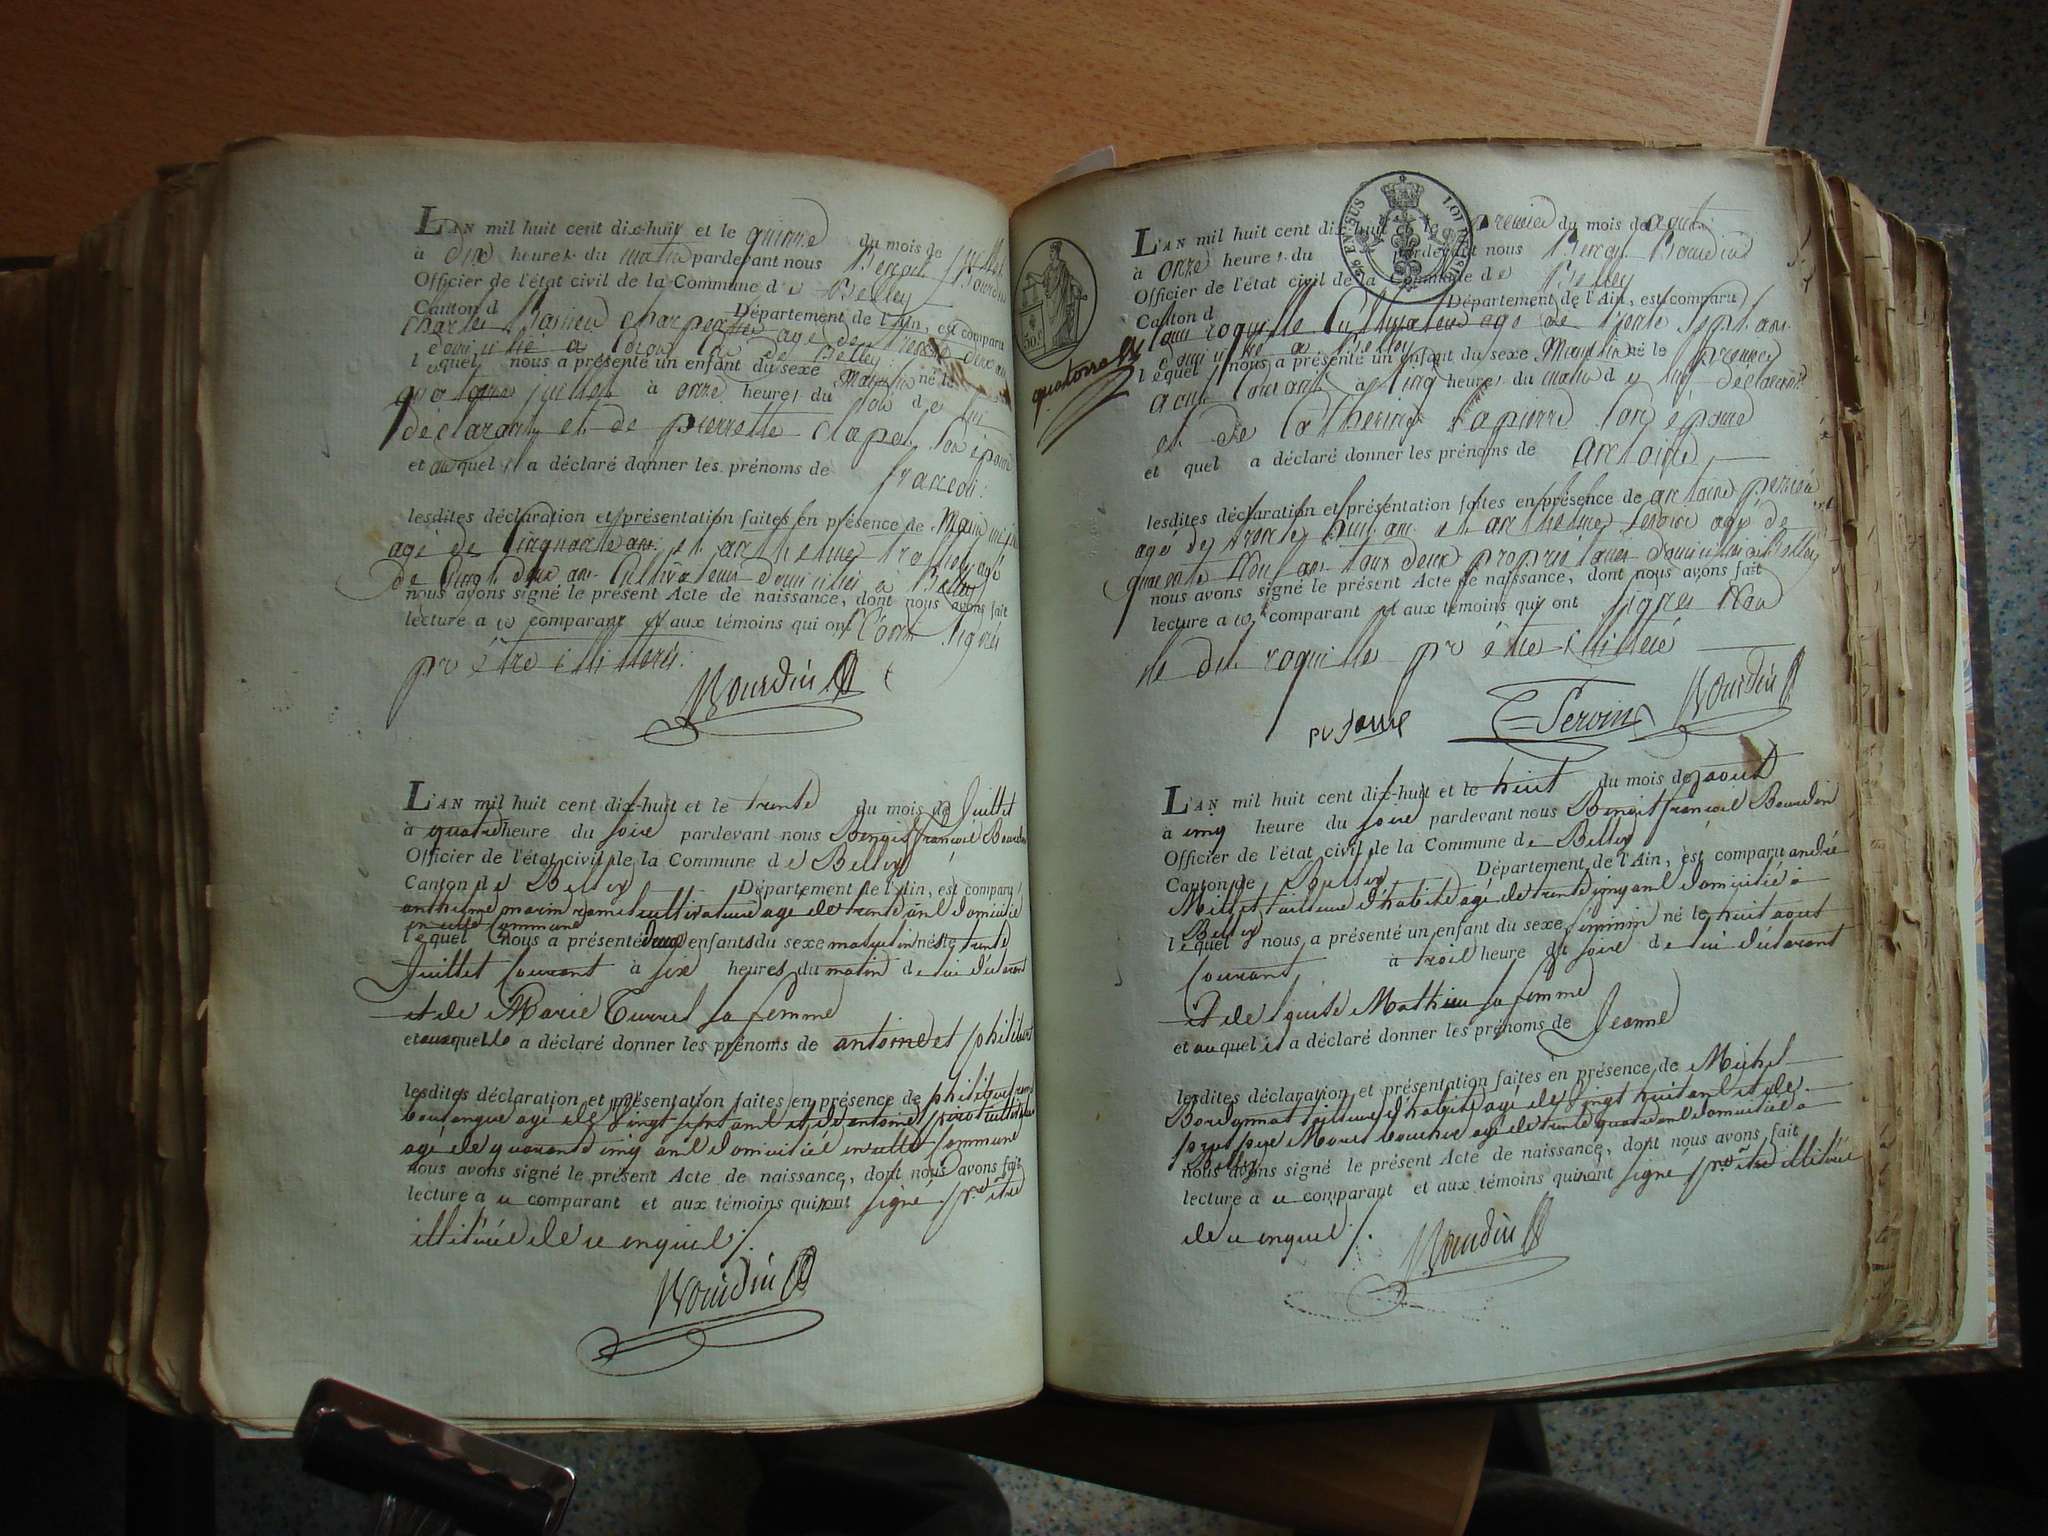 L'AN mil huit cent dix-huit et le quinze du mois de juillet
à dix heures du matin pardevant nous Benoit Bourdin
Officier de l'état civil de la Commune de Belley
Canton d Département de l'Ain, est comparu
Charles charpentier agé de trente deux ans
domicilié a de Belley
lequel nous a présenté un enfant du sexe Masculin né le
quatorze juillet à onze heures du soir de lui
déclarant et de pierrette Clapet son épouse
et auquel il a déclaré donner les prénoms de
francois
lesdites déclaration et présentation faites en présence de
agé de Cinquante ans et anthelme agé
de Vingt deux ans Cultivateurs domiciliés a Belley
nous avons signé le présent Acte de naissance, dont nous avons fait
lecture a ce comparant et aux témoins qui ont signés
pr être illiterés
Bourdin
L'AN mil huit cent dix-huit et le trente du mois de Juillet
à quatre heure du soire pardevant nous Benoit françois Bourdin
Officier de l'état civil de la Commune de Belley
Canton de Belley Département de l'Ain, est comparu
anthelme marin cultivateur agé de trente ans domicilié
en cette Commune
lequel nous a présenté deux enfants du sexe masculin nés le trente
Juillet Courant à six heures du matin de lui déclarant
et de Marie Turrel sa femme
et auxquells a déclaré donner les prénoms de antoine et philibert
lesdites déclaration et présentation faites en présence de philibert
boulanger agé de Vingt sept ans et de antoine cultivateur
agé de quarante cinq ans domiciliés en cette Commune
nous avons signé le présent Acte de naissance, dont nous avons fait
lecture à ce comparant et aux témoins qui n'ont signé pr être
illitérés de ce enquis
Bourdin
quatorze
L'AN mil huit cent dix-huit et le premier du mois de aout
à onze heures du pardevant nous Benoit Bourdin
Officier de l'état civil de la Commune de Belley
Canton d Département de l'Ain, est comparu
roquille Cultivateur agé de trente sept ans
domicilié a Belley
lequel nous a présenté un enfant du sexe Masculin né le premier
aout courant à cinq heures du matin de lui déclarant
et de Catherine Lapierre son épouse
et quel a déclaré donner les prénoms de antoine
lesdites déclaration et présentation faites en présence de antoine
agé de trente huit ans et anthelme Peroin agé de
quarante ans tous deux propriétaires domiciliés a Belley
nous avons signé le présent Acte de naissance, dont nous avons fait
lecture a ce comparant et aux témoins qui ont signés Non
le dit roquille pr être illitéré
Peroin Bourdin
L'AN mil huit cent dix-huit et le huit du mois de aoust
à cinq heure du soire pardevant nous Benoit françois Bourdin
Officier de l'état civil de la Commune de Belley
Canton de Belley Département de l'Ain, est comparu andré
Millet tailleur d'habits agé de trente cinq ans domicilié à
Belley
lequel nous a présenté un enfant du sexe feminin né le huit aout
Courant à trois heure du soire de lui déclarant
et de Louise Mathieu sa femme
et auquel il a déclaré donner les prénoms de Jeanne
lesdites déclaration et présentation faites en présence de Michel
tailleur d'habits agé de Vingt huit ans et de
agé de trente quatre ans domiciliés à
Belley
nous avons signé le présent Acte de naissance, dont nous avons fait
lecture à ce comparant et aux témoins qui n'ont signé pr être illitérés
de ce enquis
Bourdin